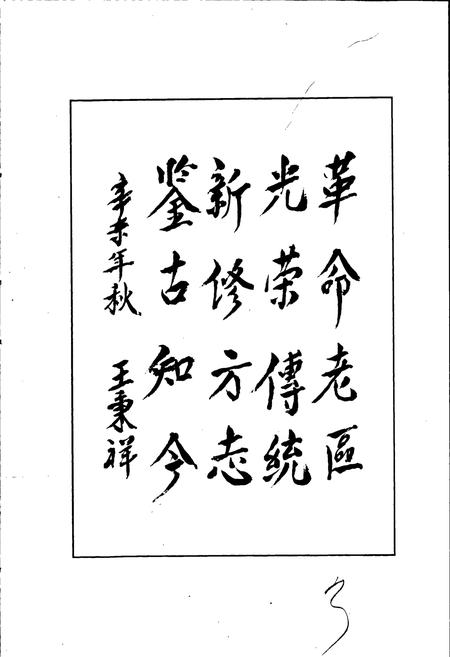 革命老區
光荣傳統
新修方志
鉴古知今
辛未年秋 王秉祥